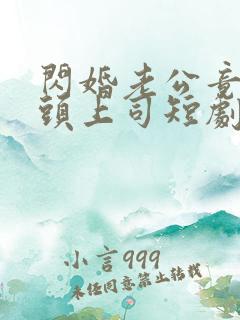 閃婚老公竟
頭上司短劇
小言999
未经同意禁止转载